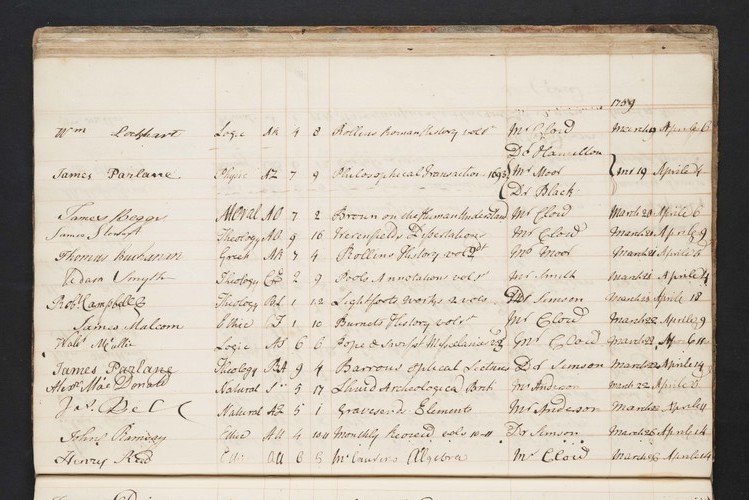 1759
Wm Lockhart Logic AR 4 8 Rollins Roman History vol Mr Cloid March 19 Aprile 6
Dr Hamillon
James Parlane Physic AZ 7 9 Philosophical Transaction 1693 Mr Moor mr 19 Aprile 4
Dr Black
James Beggs Moral AO 7 2 Brown on the Human Understand Mr Cloid March 20 Aprile 6
James Theology 9 16 Werenfelds Dissertations Mr Clow March Aprile 9
Thomas Buchanan Greek AR 7 4 Rollins History vol 2d Mr Moor March 21 Aprile
Adam Smyth Theology 2 9 Pools Annotations vol Mr Smith March Aprile
Robt Campbell Theology 1 12 Lightfoots Works 2 vols Dr Simson March Aprile 18
James Malcom Ethic 1 10 Burnets History vol Mr Cloid March 22 Aprile 9
Logic AS 6 6 Pope & Swifts Mr Cloid March 22 Aprile
James Parlane Theology BA 9 4 Barrows optical Lectures Dr Simson March Aprile 14
Alexr MacDonald Natural 5 17 Lhuid Archeologica Brit Mr Anderson march 22 Aprile
Jas Bell Natural AZ 5 1 Gravesends Elements Mr Anderson March Aprile 11
John Ramsay Ethic 4 10 11 Monthly Review vols 10-11 Dr Simson March Aprile 14
Henry Reid All 6 Mc Laurins Algebra Mr Cloid March Aprile 14